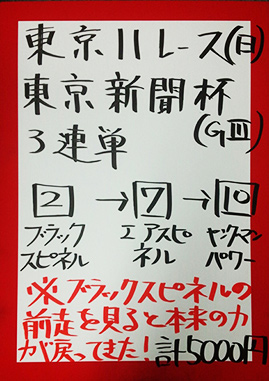 東京11レース(日)
東京新聞杯
(GⅢ)
3連単
2→7→10
ブラックスピネル
エアスピネル
ヤングマンパワー
※ブラックスピネルの
前走を見ると本来の力
が戻ってきた!計5000円